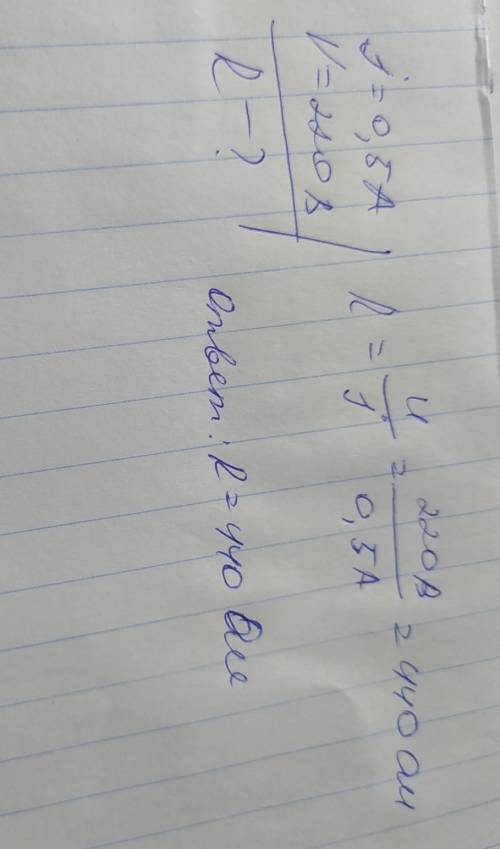 I = 0,5 А
U = 220 В
R – ?
R = U / I = 220 В / 0,5 А = 440 Ом
Ответ: R = 440 Ом